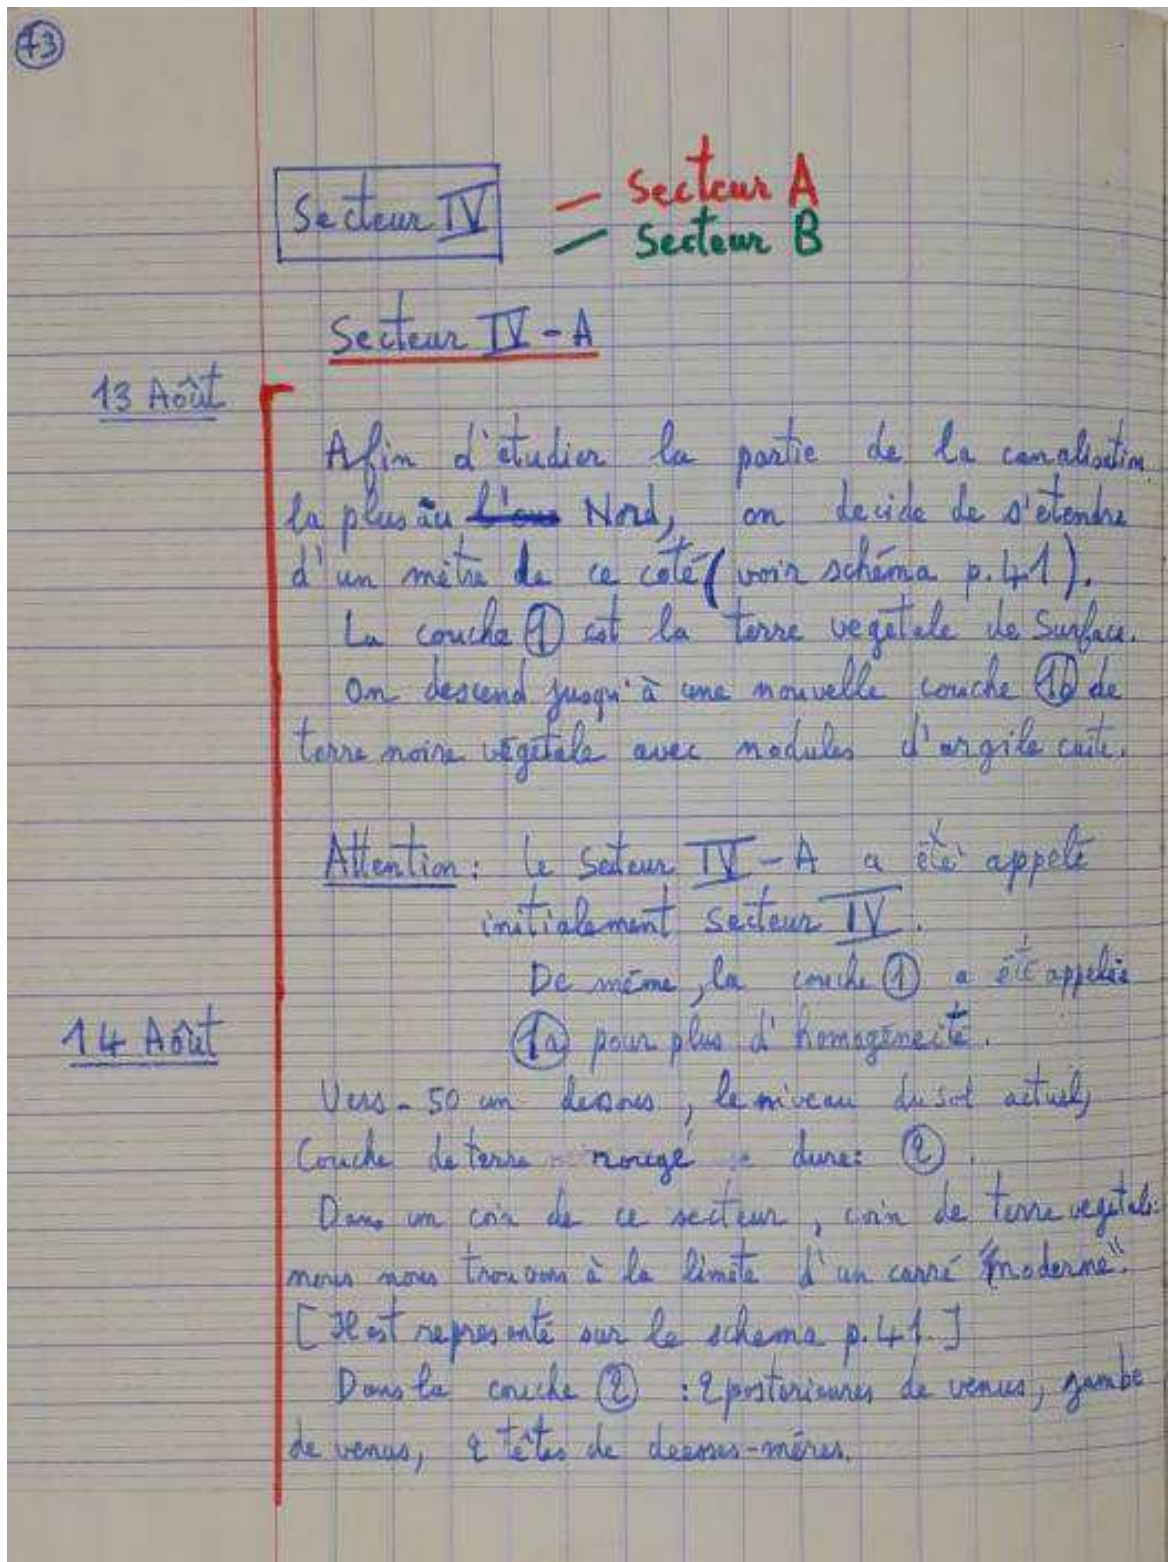 43
Secteur IV
— Secteur A
— Secteur B
Secteur IV - A
13 Août
Afin d'étudier la partie de la canalisation
la plus au Nord, on decide de s'étendre
d'un mètre de ce coté (voir schéma p.41).
La couche ① est la terre vegetale de Surface.
On descend jusqu'à une nouvelle couche (1b) de
terre noire végétale avec nodules d'argile cuite.
Attention : Le Secteur IV - A a été appelé
initialement Secteur IV.
De même, la couche ① a été appelée
14 Août
(1a) pour plus d'homogénéité.
Vers - 50 cm dessous, le niveau du sol actuel,
Couche de terre rouge dure : ②.
Dans un coin de ce secteur, coin de terre vegetale :
nous nous trouvons à la limite d'un carré "moderne".
[Il est représenté sur le schema p.41.]
Dans la couche ② : 2 posterieures de venus, jambe
de venus, 2 têtes de deesses-mères.